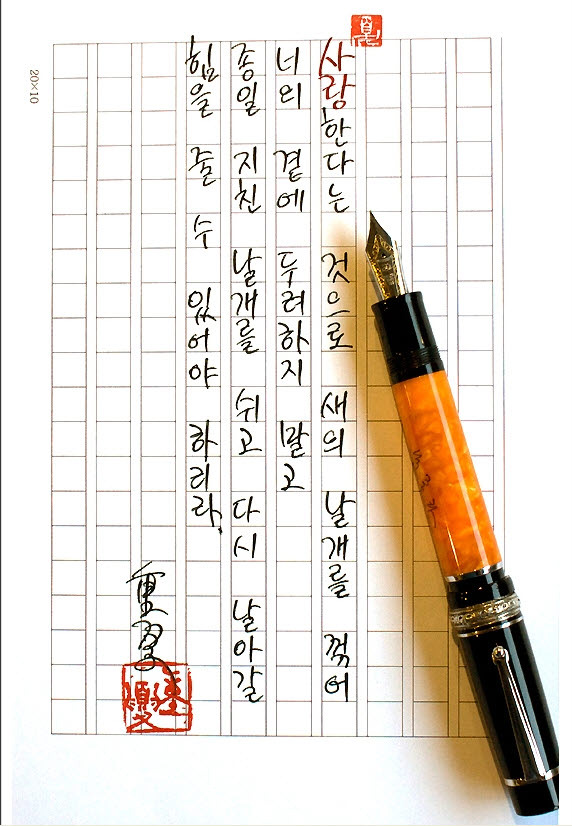 사랑한다는 것으로 새의 날개를 꺾어
너의 곁에 두려하지 말고
종일 지친 날개를 쉬고 다시 날아갈
힘을 줄 수 있어야 하리라.
20×10